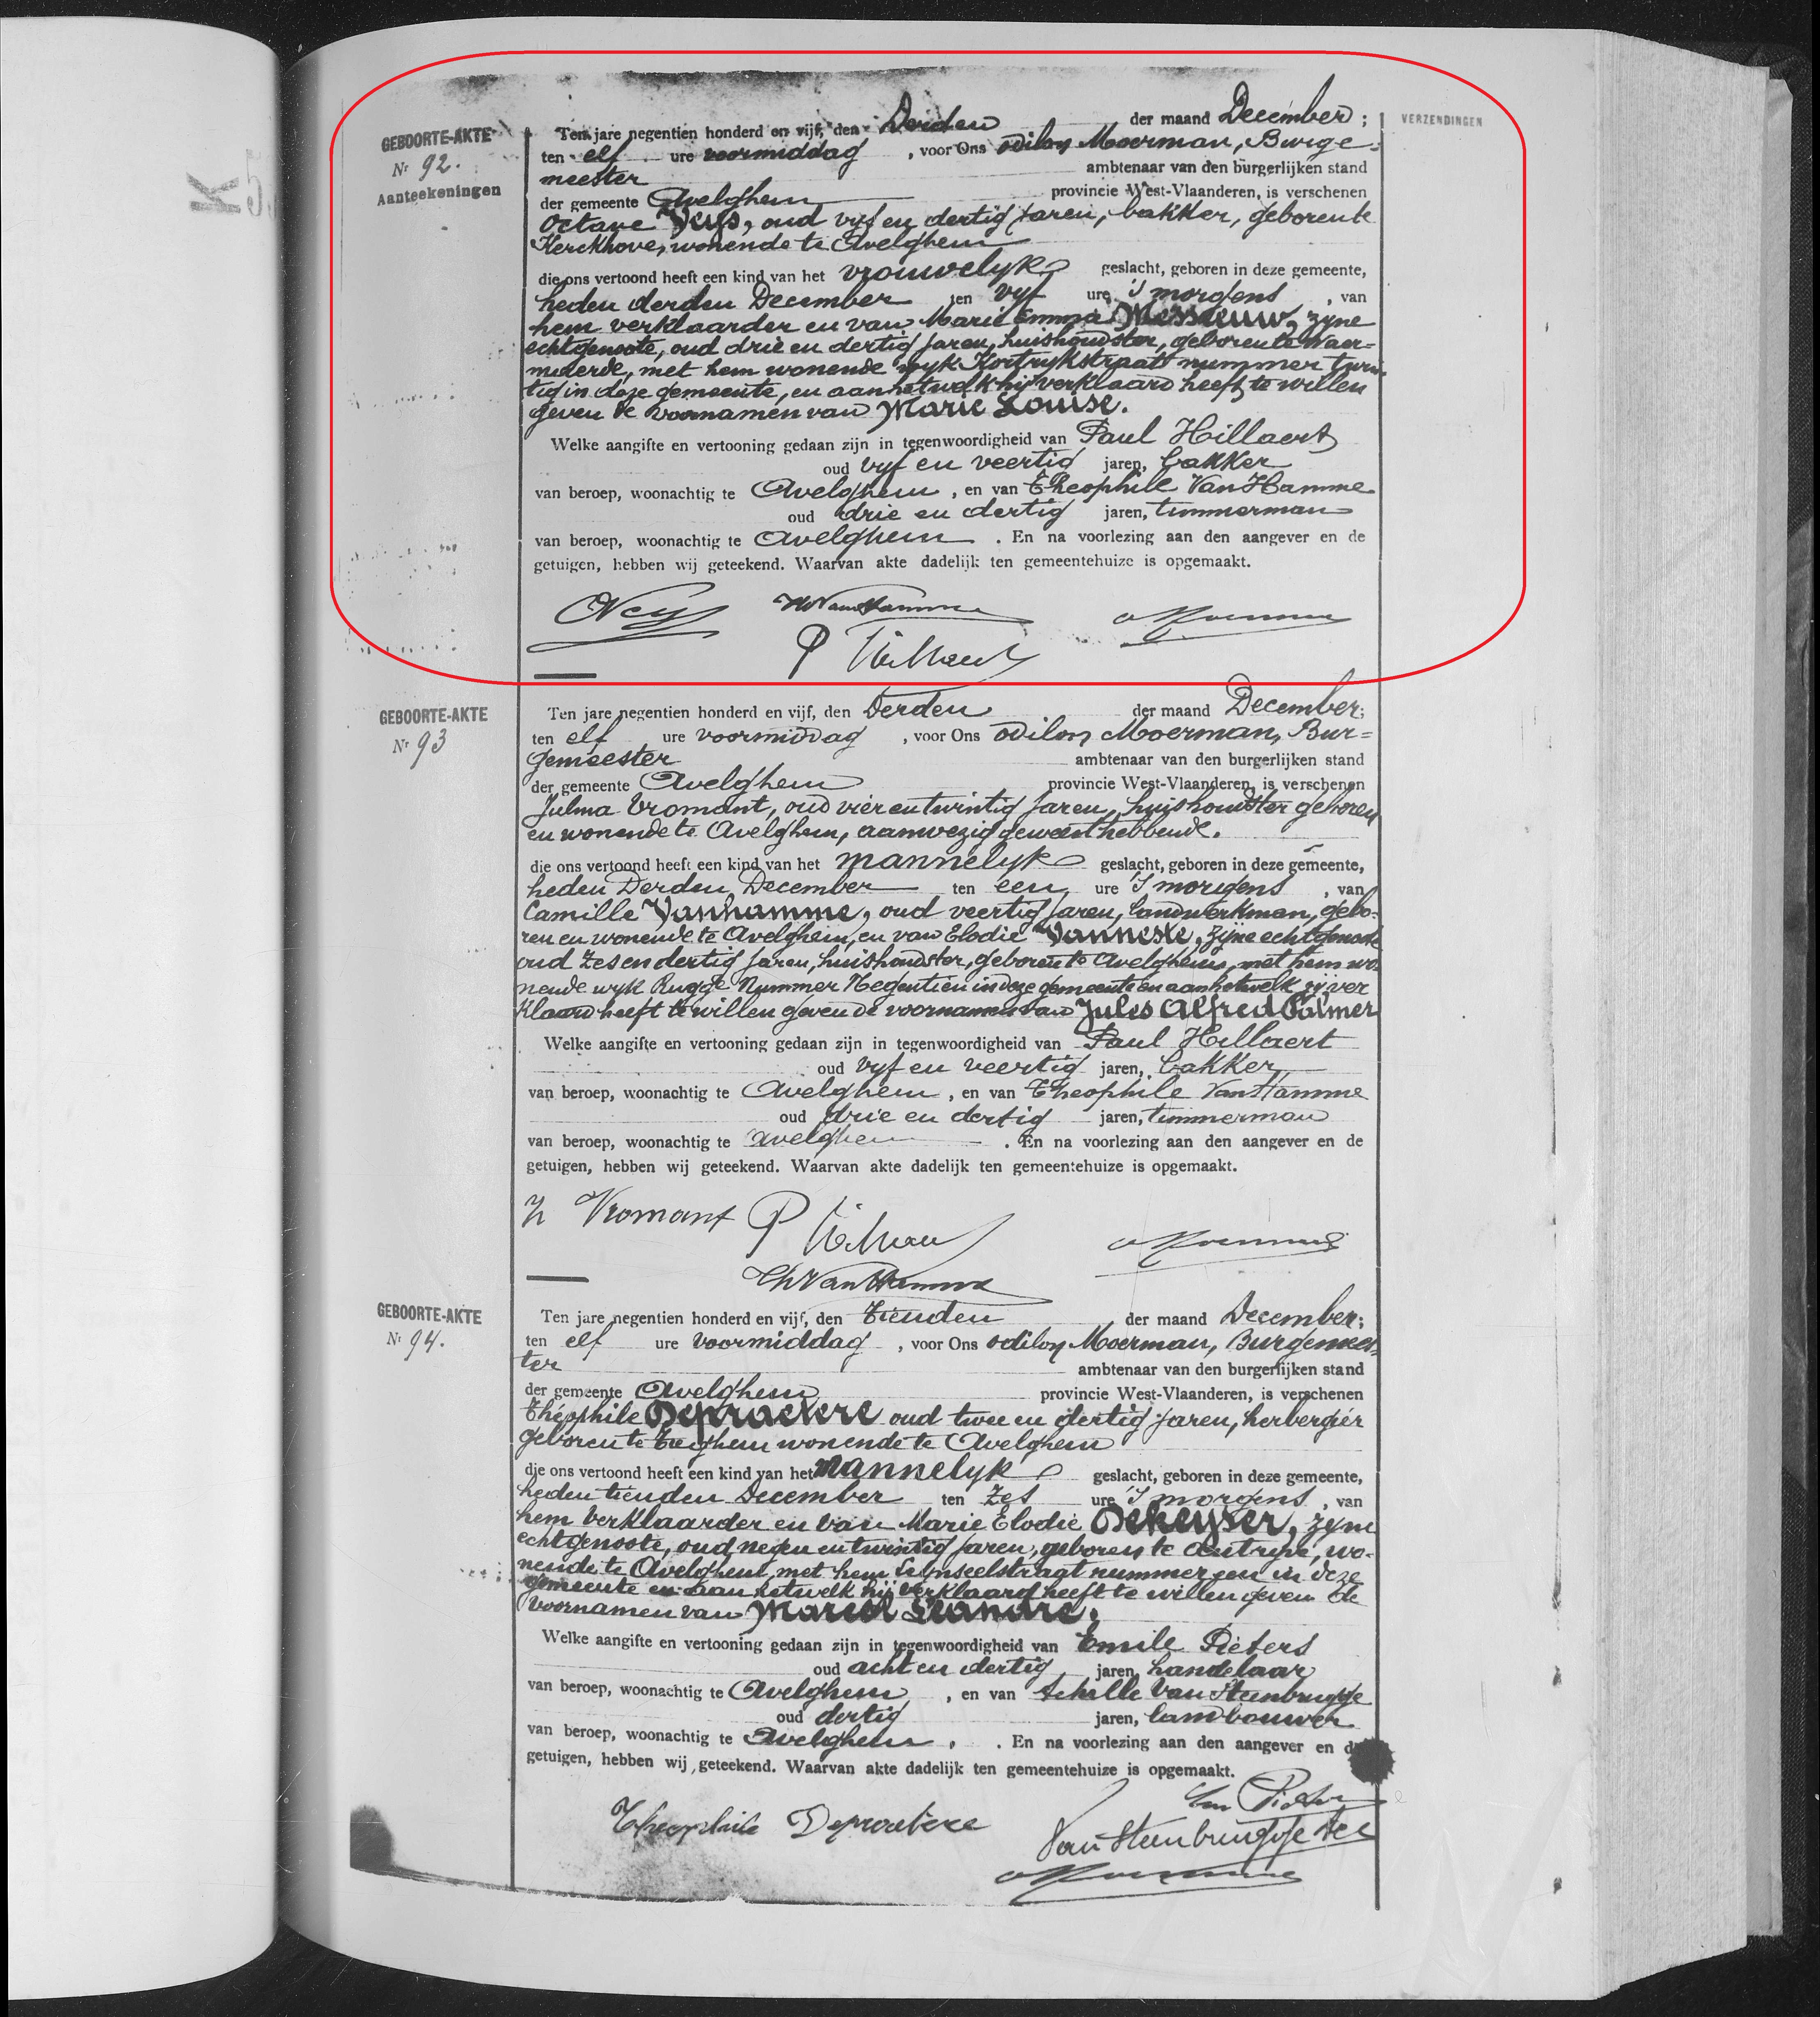 GEBOORTE-AKTE
Nr 92.
Aanteekeningen
VERZENDINGEN
Ten jare negentien honderd en vijf, den Derden der maand December;
ten elf ure voormiddag, voor Ons Odilon Moerman, Burge-
meester ambtenaar van den burgerlijken stand
der gemeente Avelghem provincie West-Vlaanderen, is verschenen
Octave Veys, oud vijf en dertig jaren, bakker, geboren te
Kerckhove, wonende te Avelghem
die ons vertoond heeft een kind van het vrouwelyk geslacht, geboren in deze gemeente,
heden derden December ten vyf ure 's morgens, van
hem verklaarder en van Marie Emma Messieuw, zyne
echtgenoote, oud drie en dertig jaren, huishoudster, geboren te Waer-
maerde, met hem wonende wyk Kortrykstraat nummer twin-
tig in deze gemeente, en aan hetwelk hij verklaard heeft te willen
geven de voornamen van Marie Louise.
Welke aangifte en vertooning gedaan zijn in tegenwoordigheid van Paul Hillaert
oud vyf en veertig jaren, bakker
van beroep, woonachtig te Avelghem, en van Theophile Van Hamme
oud drie en dertig jaren, timmerman
van beroep, woonachtig te Avelghem. En na voorlezing aan den aangever en de
getuigen, hebben wij geteekend. Waarvan akte dadelijk ten gemeentehuize is opgemaakt.
O Veys Th Van Hamme O Moerman
P Hillaert
GEBOORTE-AKTE
Nr 93
Ten jare negentien honderd en vijf, den Derden der maand December;
ten elf ure voormiddag, voor Ons Odilon Moerman, Bur=
gemeester ambtenaar van den burgerlijken stand
der gemeente Avelghem provincie West-Vlaanderen, is verschenen
Julma Vromant, oud vier en twintig jaren, huishoudster geboren
en wonende te Avelghem, aanwezig geweest hebbende.
die ons vertoond heeft een kind van het mannelyk geslacht, geboren in deze gemeente,
heden Derden December ten een ure 's morgens, van
Camille Vanhamme, oud veertig jaren, landwerkman, gebo-
ren en wonende te Avelghem, en van Elodie Vanneste, zyne echtgenoote
oud zes en dertig jaren, huishoudster, geboren te Avelghem, met hem wo-
nende wyk Rugge Nummer Negentien in deze gemeente en aan hetwelk zy ver
klaard heeft te willen geven de voornamen van Jules Alfred Palmer
Welke aangifte en vertooning gedaan zijn in tegenwoordigheid van Paul Hillaert
oud vyf en veertig jaren, bakker
van beroep, woonachtig te Avelghem, en van Theophile Van Hamme
oud drie en dertig jaren, timmerman
van beroep, woonachtig te Avelghem. En na voorlezing aan den aangever en de
getuigen, hebben wij geteekend. Waarvan akte dadelijk ten gemeentehuize is opgemaakt.
Vromant P Hillaert O Moerman
Th Van Hamme
GEBOORTE-AKTE
Nr 94.
Ten jare negentien honderd en vijf, den Tienden der maand December;
ten elf ure voormiddag, voor Ons Odilon Moerman, Burgemees-
ter ambtenaar van den burgerlijken stand
der gemeente Avelghem provincie West-Vlaanderen, is verschenen
Théophile Depraetere oud twee en dertig jaren, herbergier
geboren te wonende te Avelghem
die ons vertoond heeft een kind van het mannelyk geslacht, geboren in deze gemeente,
heden tienden December ten zes ure 's morgens, van
hem verklaarder en van Marie Elodie Dekeyser, zyne
echtgenoote, oud negen en twintig jaren, geboren te Autryve, wo-
nende te Avelghem, met hem nummer een in deze
gemeente en aan hetwelk hij verklaard heeft te willen geven de
voornamen van Marcel Leandre.
Welke aangifte en vertooning gedaan zijn in tegenwoordigheid van Emile Pieters
oud acht en dertig jaren, handelaar
van beroep, woonachtig te Avelghem, en van Achille Van Steenbrugge
oud dertig jaren, landbouwer
van beroep, woonachtig te Avelghem. En na voorlezing aan den aangever en de
getuigen, hebben wij geteekend. Waarvan akte dadelijk ten gemeentehuize is opgemaakt.
Em Pieters
Theophile Depraetere Van Steenbrugge Ach
O Moerman